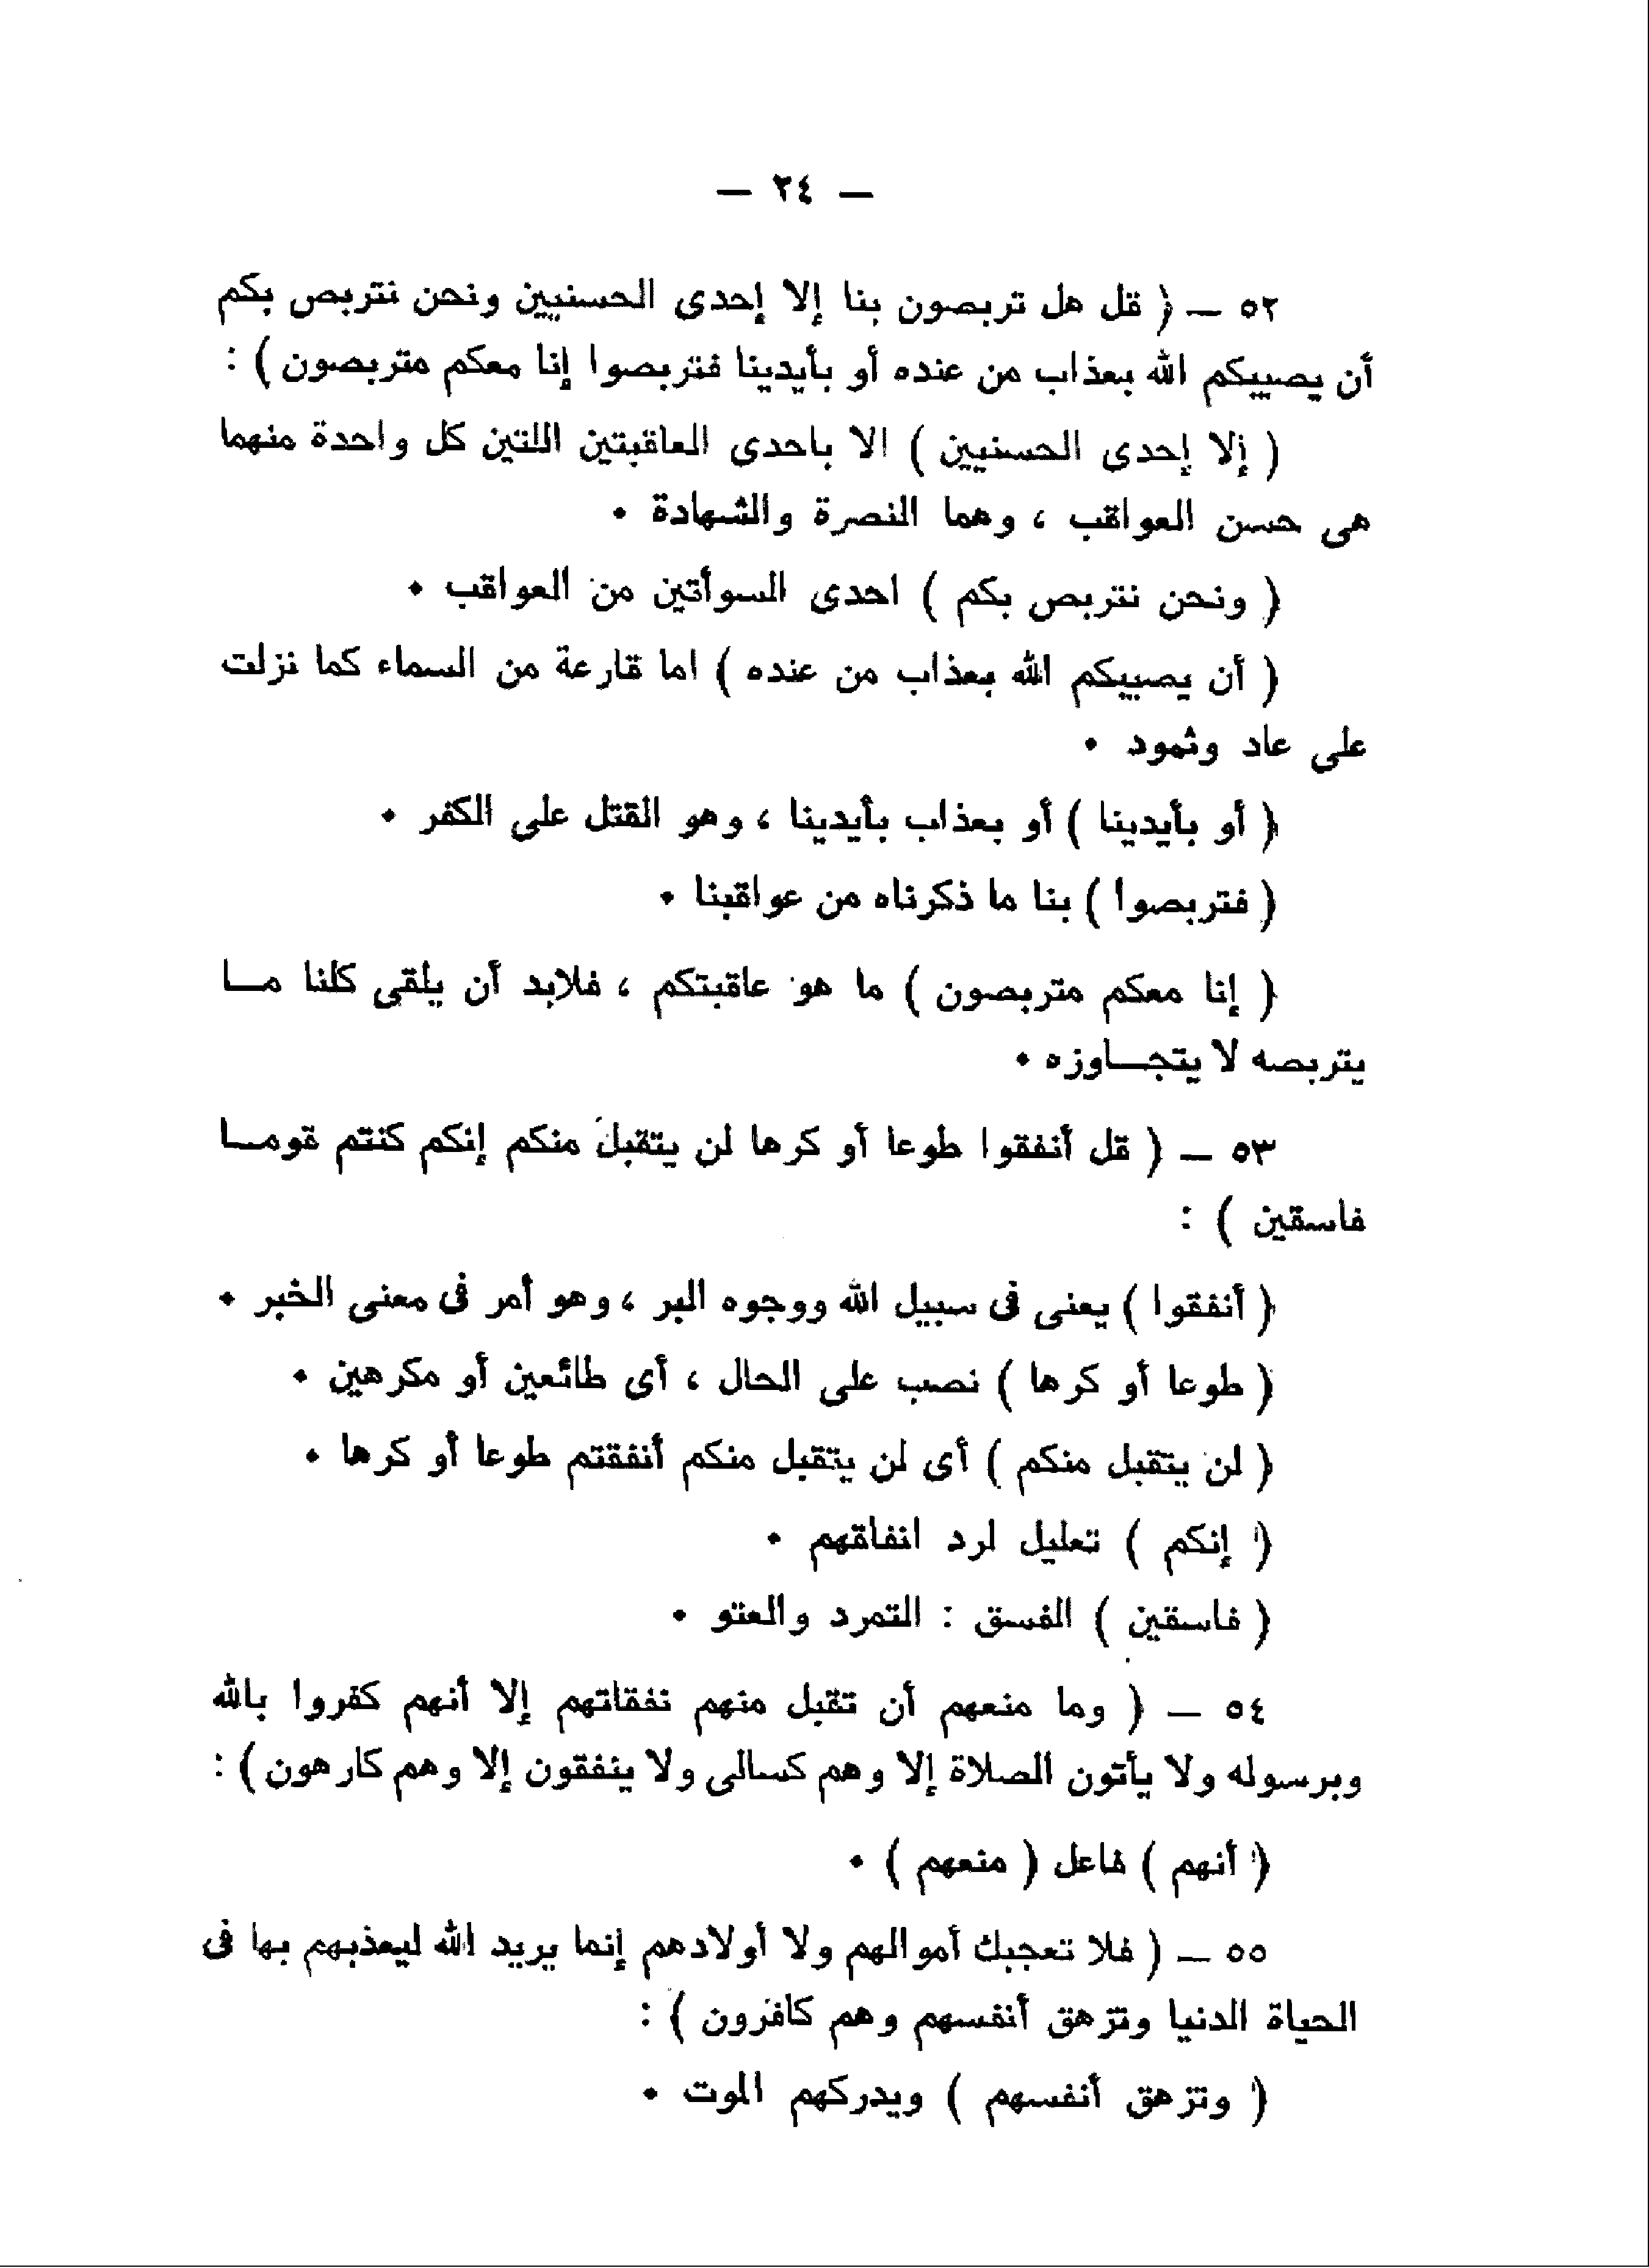 — ٢٤ —
٥٢ — ( قل هل تربصون بنا إلا إحدى الحسنيين ونحن نتربص بكم
أن يصيبكم الله بعذاب من عنده أو بأيدينا فتربصوا إنا معكم متربصون ) :
( إلا إحدى الحسنيين ) الا باحدى العاقبتين اللتين كل واحدة منهما
هى حسن العواقب ، وهما النصرة والشهادة ٠
( ونحن نتربص بكم ) احدى السوأتين من العواقب ٠
( أن يصيبكم الله بعذاب من عنده ) اما قارعة من السماء كما نزلت
على عاد وثمود ٠
( أو بأيدينا ) أو بعذاب بأيدينا ، وهو القتل على الكفر ٠
( فتربصوا ) بنا ما ذكرناه من عواقبنا ٠
( إنا معكم متربصون ) ما هو عاقبتكم ، فلابد أن يلقى كلنا مـا
يتربصه لا يتجـاوزه ٠
٥٣ — ( قل أنفقوا طوعا أو كرها لن يتقبل منكم إنكم كنتم قومـا
فاسقين ) :
( أنفقوا ) يعنى فى سبيل الله ووجوه البر ، وهو أمر فى معنى الخبر ٠
( طوعا أو كرها ) نصب على الحال ، أى طائعين أو مكرهين ٠
( لن يتقبل منكم ) أى لن يتقبل منكم أنفقتم طوعا أو كرها ٠
( إنكم ) تعليل لرد انفاقهم ٠
( فاسقين ) الفسق : التمرد والعتو ٠
٥٤ — ( وما منعهم أن تقبل منهم نفقاتهم إلا أنهم كفروا بالله
وبرسوله ولا يأتون الصلاة إلا وهم كسالى ولا ينفقون إلا وهم كارهون ) :
( أنهم ) فاعل ( منعهم ) ٠
٥٥ — ( فلا تعجبك أموالهم ولا أولادهم إنما يريد الله ليعذبهم بها فى
الحياة الدنيا وتزهق أنفسهم وهم كافرون ) :
( وتزهق أنفسهم ) ويدركهم الموت ٠